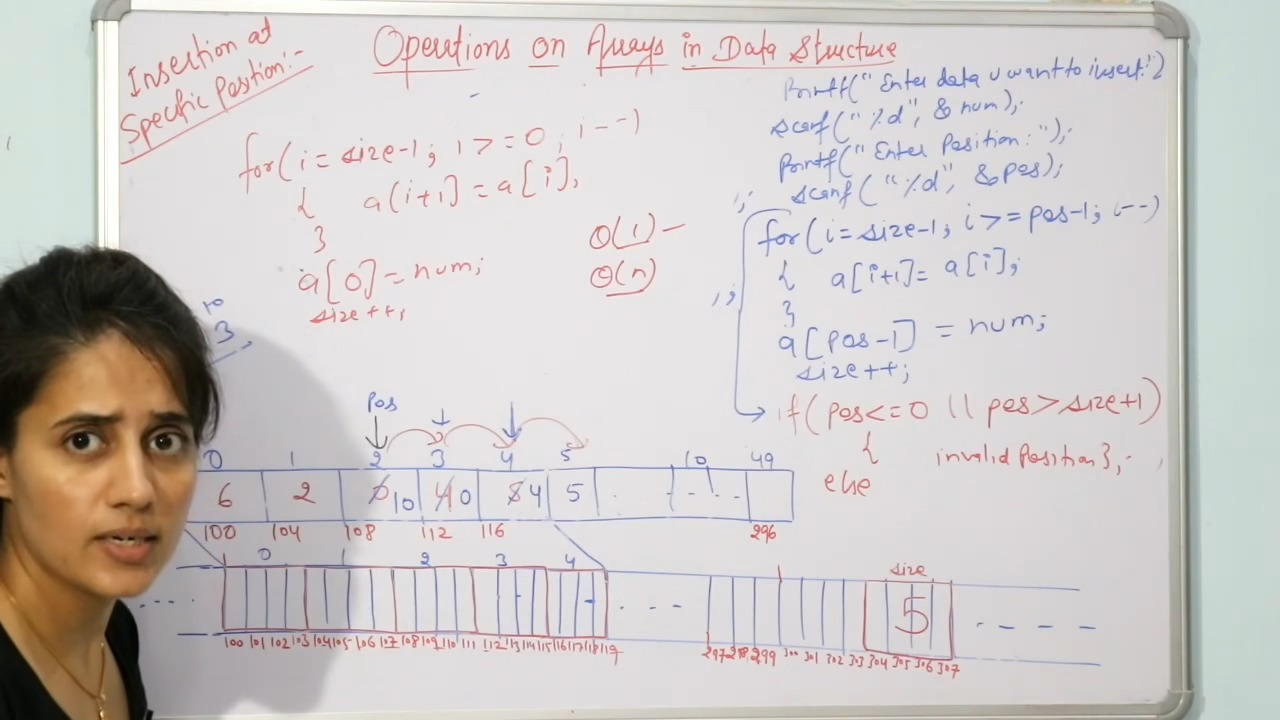 Operations on Arrays in Data Structure
Insertion at
Specific Position:-
for( i = size-1; i >= 0; i--)
{ a(i+1] = a[i];
}
a[0] = num;
size++;
O(1) -
O(n)
10
3
Printf(" Enter data u want to insert:")
scanf(" %d", & num);
Printf(" Enter Position : ");
scanf( "%d", &pos);
for( i= size-1; i >= pos-1; i--)
{ a[i+1]= a[i];
}
a[pos-1] = num;
size++;
if( pos<=0 || pos>size+1)
{ invalid position},
else
Pos
0 1 2 3 4 5 10 49
6 2 0 10 4 0 8 4 5
100 104 108 112 116 296
0 1 2 3 4
size
5
100 101 102 103 104 105 106 107 108 109 110 111 112 113 114 115 116 117 118 119
297 298 299 300 301 302 303 304 305 306 307